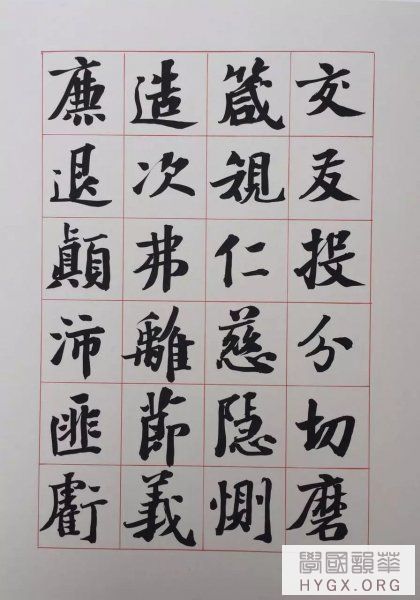 交友投分切磨
箴規仁慈隱惻
造次弗離節義
廉退顛沛匪虧
學國韻華
HYGX.ORG